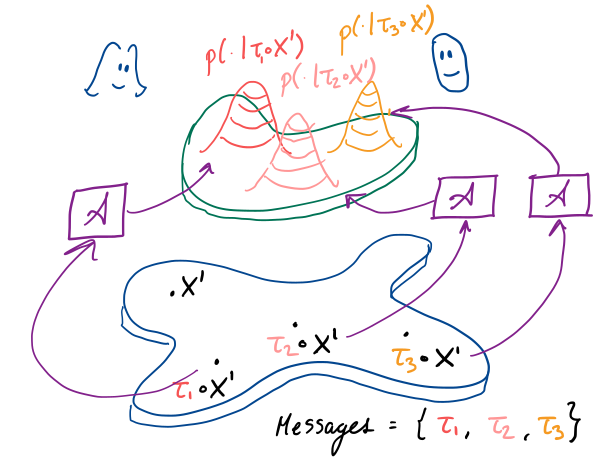 p(·|τ₁∘X')
p(·|τ₃∘X')
p(·|τ₂∘X')
𝒜
𝒜
𝒜
X'
τ₂∘X'
τ₃∘X'
τ₁∘X'
Messages = {τ₁, τ₂, τ₃}